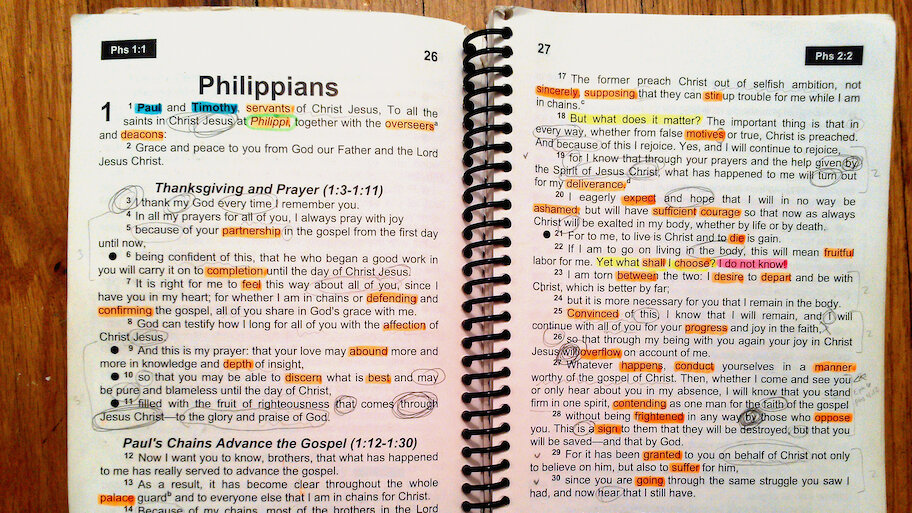 Phs 1:1
26
Philippians
1 1 Paul and Timothy, servants of Christ Jesus, To all the
saints in Christ Jesus at Philippi, together with the overseersa
and deacons:
2 Grace and peace to you from God our Father and the Lord
Jesus Christ.
Thanksgiving and Prayer (1:3-1:11)
3 I thank my God every time I remember you.
4 In all my prayers for all of you, I always pray with joy
5 because of your partnership in the gospel from the first day
until now,
● 6 being confident of this, that he who began a good work in
you will carry it on to completion until the day of Christ Jesus.
7 It is right for me to feel this way about all of you, since I
have you in my heart; for whether I am in chains or defending and
confirming the gospel, all of you share in God's grace with me.
8 God can testify how I long for all of you with the affection of
Christ Jesus.
● 9 And this is my prayer: that your love may abound more and
more in knowledge and depth of insight,
● 10 so that you may be able to discern what is best and may
be pure and blameless until the day of Christ,
● 11 filled with the fruit of righteousness that comes through
Jesus Christ—to the glory and praise of God.
Paul's Chains Advance the Gospel (1:12-1:30)
12 Now I want you to know, brothers, that what has happened
to me has really served to advance the gospel.
13 As a result, it has become clear throughout the whole
palace guardb and to everyone else that I am in chains for Christ.
14 Because of my chains, most of the brothers in the Lord
27
Phs 2:2
17 The former preach Christ out of selfish ambition, not
sincerely, supposing that they can stir up trouble for me while I am
in chains.c
18 But what does it matter? The important thing is that in
every way, whether from false motives or true, Christ is preached.
And because of this I rejoice. Yes, and I will continue to rejoice,
19 for I know that through your prayers and the help given by
the Spirit of Jesus Christ, what has happened to me will turn out
for my deliverance.d
20 I eagerly expect and hope that I will in no way be
ashamed, but will have sufficient courage so that now as always
Christ will be exalted in my body, whether by life or by death.
● 21 For to me, to live is Christ and to die is gain.
22 If I am to go on living in the body, this will mean fruitful
labor for me. Yet what shall I choose? I do not know!
23 I am torn between the two: I desire to depart and be with
Christ, which is better by far;
24 but it is more necessary for you that I remain in the body.
25 Convinced of this, I know that I will remain, and I will
continue with all of you for your progress and joy in the faith,
26 so that through my being with you again your joy in Christ
Jesus will overflow on account of me.
27 Whatever happens, conduct yourselves in a manner
worthy of the gospel of Christ. Then, whether I come and see you
or only hear about you in my absence, I will know that you stand
firm in one spirit, contending as one man for the faith of the gospel
28 without being frightened in any way by those who oppose
you. This is a sign to them that they will be destroyed, but that you
will be saved—and that by God.
29 For it has been granted to you on behalf of Christ not only
to believe on him, but also to suffer for him,
30 since you are going through the same struggle you saw I
had, and now hear that I still have.